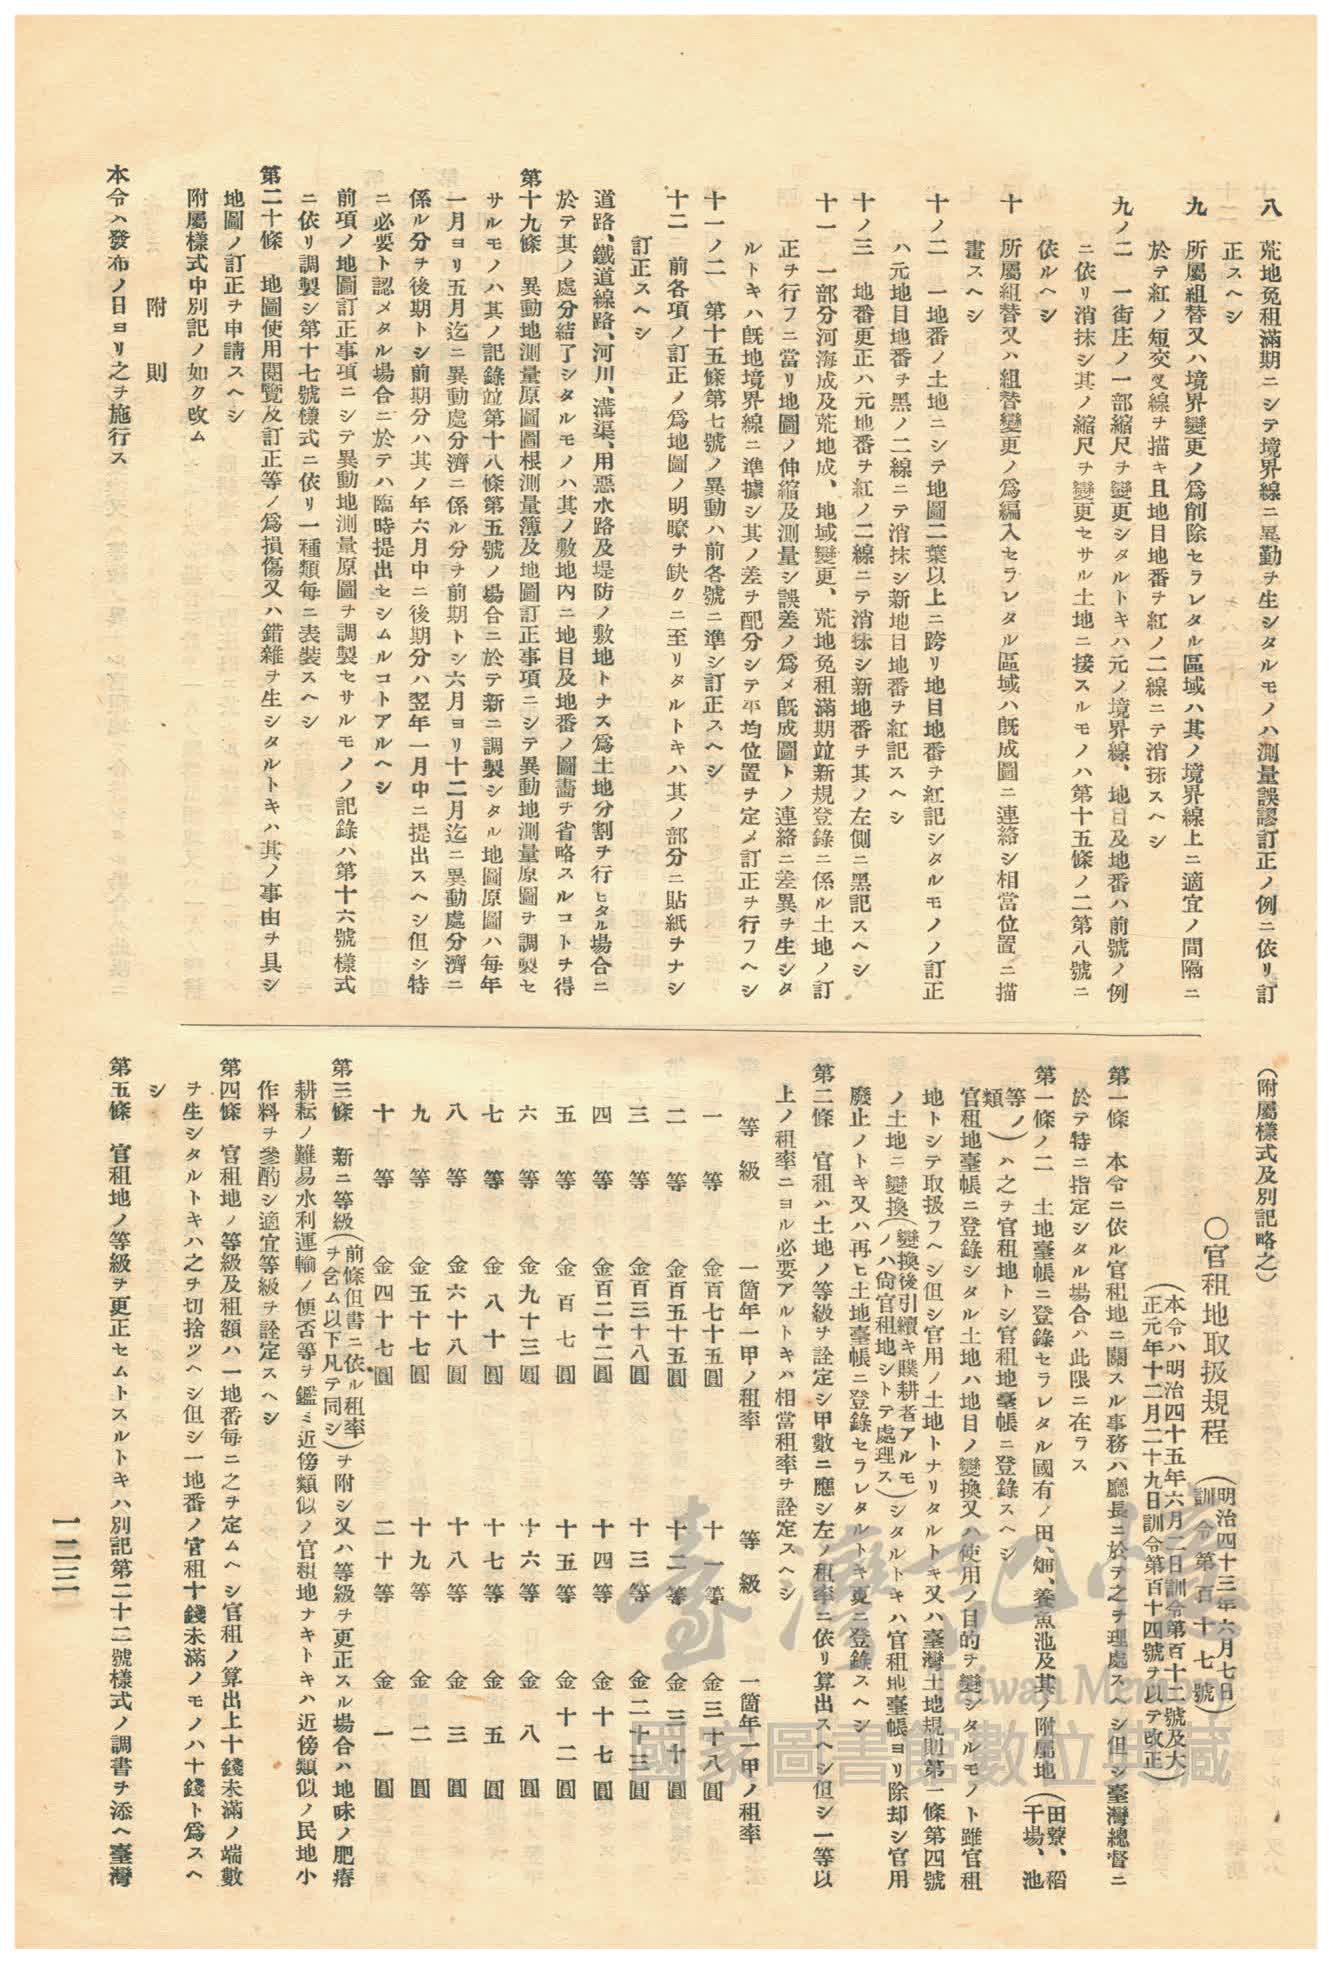 八　荒地免租滿期ニシテ境界線ニ異動ヲ生シタルモノハ測量誤謬訂正ノ例ニ依リ訂
正スヘシ
九　所屬組替又ハ境界變更ノ爲削除セラレタル區域ハ其ノ境界線上ニ適宜ノ間隔ニ
於テ紅ノ短交叉線ヲ描キ且地目地番ヲ紅ノ二線ニテ消抹スヘシ
九ノ二　一街庄ノ一部縮尺ヲ變更シタルトキハ元ノ境界線、地目及地番ハ前號ノ例
ニ依リ消抹シ其ノ縮尺ヲ變更セサル土地ニ接スルモノハ第十五條ノ二第八號ニ
依ルヘシ
十　所屬組替又ハ組替變更ノ爲編入セラレタル區域ハ既成圖ニ連絡シ相當位置ニ描
畫スヘシ
十ノ二　一地番ノ土地ニシテ地圖二葉以上ニ跨リ地目地番ヲ紅記シタルモノノ訂正
ハ元地目地番ヲ黑ノ二線ニテ消抹シ新地目地番ヲ紅記スヘシ
十ノ三　地番更正ハ元地番ヲ紅ノ二線ニテ消抹シ新地番ヲ其ノ左側ニ黑記スヘシ
十一　一部分河海成及荒地成、地域變更、荒地免租滿期竝新規登錄ニ係ル土地ノ訂
正ヲ行フニ當リ地圖ノ伸縮及測量シ誤差ノ爲メ既成圖トノ連絡ニ差異ヲ生シタ
ルトキハ既地境界線ニ準據シ其ノ差ヲ配分シテ平均位置ヲ定メ訂正ヲ行フヘシ
十一ノ二　第十五條第七號ノ異動ハ前各號ニ準シ訂正スヘシ
十二　前各項ノ訂正ノ爲地圖ノ明瞭ヲ缺クニ至リタルトキハ其ノ部分ニ貼紙ヲナシ
訂正スヘシ
道路、鐵道線路、河川、溝渠、用惡水路及堤防ノ敷地トナス爲土地分割ヲ行ヒタル場合ニ
於テ其ノ處分結了シタルモノハ其ノ敷地內ニ地目及地番ノ圖畵ヲ省略スルコトヲ得
第十九條　異動地測量原圖圖根測量簿及地圖訂正事項ニシテ異動地測量原圖ヲ調製セ
サルモノハ其ノ記錄竝第十八條第五號ノ場合ニ於テ新ニ調製シタル地圖原圖ハ每年
一月ヨリ五月迄ニ異動處分濟ニ係ル分ヲ前期トシ六月ヨリ十二月迄ニ異動處分濟ニ
係ル分ヲ後期トシ前期分ハ其ノ年六月中ニ後期分ハ翌年一月中ニ提出スヘシ但シ特
ニ必要ト認メタル場合ニ於テハ臨時提出セシムルコトアルヘシ
前項ノ地圖訂正事項ニシテ異動地測量原圖ヲ調製セサルモノノ記錄ハ第十六號樣式
ニ依リ調製シ第十七號樣式ニ依リ一種類每ニ表裝スヘシ
第二十條　地圖使用閱覽及訂正等ノ爲損傷又ハ錯雜ヲ生シタルトキハ其ノ事由ヲ具シ
地圖ノ訂正ヲ申請スヘシ
附屬樣式中別記ノ如ク改ム
附　則
本令ハ發布ノ日ヨリ之ヲ施行ス
（附屬樣式及別記略之）
〇官租地取扱規程（明治四十三年六月七日
訓令第百十七號）
（本令ハ明治四十五年六月二日訓令第百十二號及大
正元年十二月二十九日訓令第百十四號ヲ以テ改正）
第一條　本令ニ依ル官租地ニ關スル事務ハ廳長ニ於テ之ヲ理處スヘシ但シ臺灣總督ニ
於テ特ニ指定シタル場合ハ此限ニ在ラス
第一條ノ二　土地臺帳ニ登錄セラレタル國有ノ田、畑、養魚池及其ノ附屬地（田寮、稻
干場、池
等ノ
類）ハ之ヲ官租地トシ官租地臺帳ニ登錄スヘシ
官租地臺帳ニ登錄シタル土地ハ地目ノ變換又ハ使用ノ目的ヲ變シタルモノト雖官租
地トシテ取扱フヘシ但シ官用ノ土地トナリタルトキ又ハ臺灣土地規則第一條第四號
ノ土地ニ變換（變換後引續キ贌耕者アルモ
ノハ尙官租地シトテ處理ス）シタルトキハ官租地臺帳ヨリ除却シ官用
廢止ノトキ又ハ再ヒ土地臺帳ニ登錄セラレタルトキ更ニ登錄スヘシ
第二條　官租ハ土地ノ等級ヲ詮定シ甲數ニ應シ左ノ租率ニ依リ算出スヘシ但シ一等以
上ノ租率ニヨル必要アルトキハ相當租率ヲ詮定スヘシ
等級　一箇年一甲ノ租率　等級　一箇年一甲ノ租率
一等　金百七十五圓　十一等　金三十八圓
二等　金百五十五圓　十二等　金三十圓
三等　金百三十八圓　十三等　金二十三圓
四等　金百二十二圓　十四等　金十七圓
五等　金百七圓　十五等　金十二圓
六等　金九十三圓　十六等　金八圓
七等　金八十圓　十七等　金五圓
八等　金六十八圓　十八等　金三圓
九等　金五十七圓　十九等　金二圓
十等　金四十七圓　二十等　金一圓
第三條　新ニ等級（前條但書ニ依ル租率
ヲ含ム以下凡テ同シ）ヲ附シ又ハ等級ヲ更正スル場合ハ地味ノ肥瘠
耕耘ノ難易水利運輸ノ便否等ヲ鑑ミ近傍類似ノ官租地ナキトキハ近傍類似ノ民地小
作料ヲ參酌シ適宜等級ヲ詮定スヘシ
第四條　官租地ノ等級及租額ハ一地番每ニ之ヲ定ムヘシ官租ノ算出上十錢未滿ノ端數
ヲ生シタルトキハ之ヲ切捨ツヘシ但シ一地番ノ官租十錢未滿ノモノハ十錢ト爲スヘ
シ
第五條　官租地ノ等級ヲ更正セムトスルトキハ別記第二十二號樣式ノ調書ヲ添ヘ臺灣
一二三
臺灣記憶
Taiwan Memory
國家圖書館數位典藏